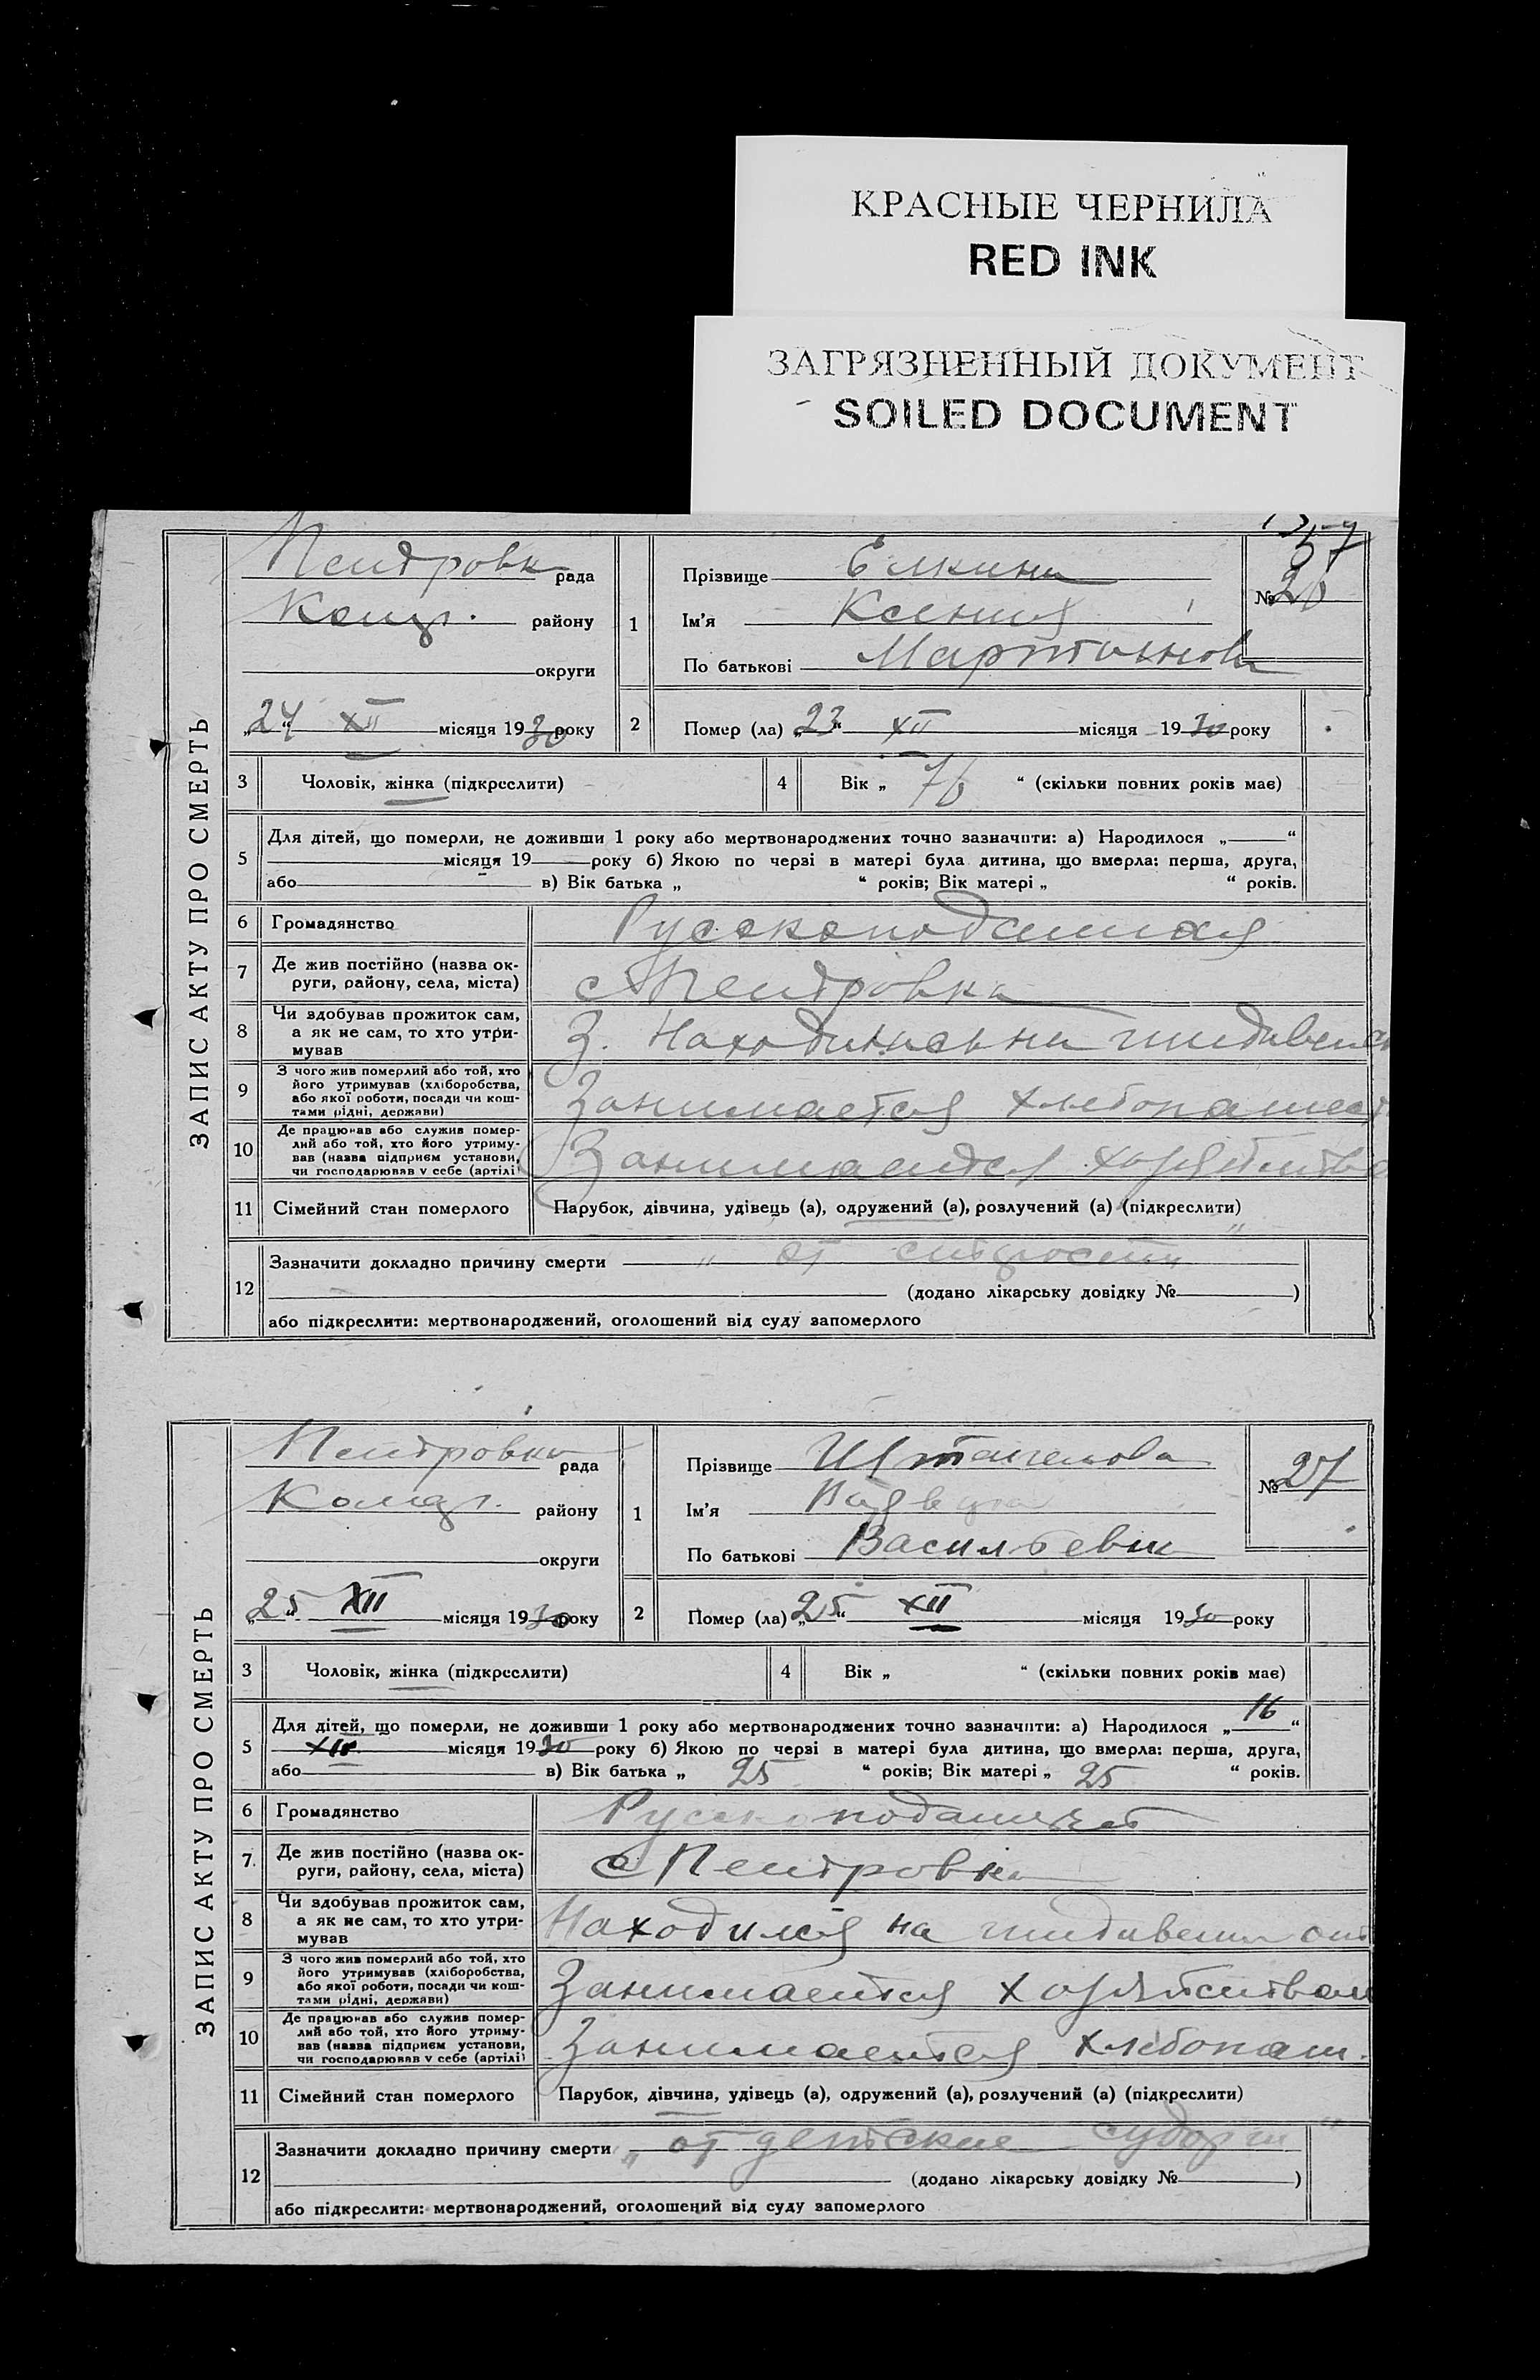 КРАСНЫЕ ЧЕРНИЛА
RED INK
ЗАГРЯЗНЕННЫЙ ДОКУМЕНТ
SOILED DOCUMENT
57
ЗАПИС АКТУ ПРО СМЕРТЬ
Петровка рада
району
округи
„24“ XII місяця 1930 року
1
Прізвище Елкина
Ім’я Ксения
По батькові Мартыновн
№ 26
2
Помер (ла) „23“ XII місяця 1930 року
3 Чоловік, жінка (підкреслити)
4 Вік „ 76 “ (скільки повних років має)
5
Для дітей, що померли, не доживши 1 року або мертвонароджених точно зазначити: а) Народилося „ “
місяця 19 року б) Якою по черзі в матері була дитина, що вмерла: перша, друга,
або в) Вік батька „ “ років; Вік матері „ “ років.
6 Громадянство Русскоподанная
7 Де жив постійно (назва ок-
руги, району, села, міста)
с Петровка
8 Чи здобував прожиток сам,
а як не сам, то хто утри-
мував
З. Находилась на иждивен
9 З чого жив померлий або той, хто
його утримував (хліборобства,
або якої роботи, посади чи кош-
тами рідні, держави)
Занимается хлебопашест
10 Де працював або служив помер-
лий або той, хто його утриму-
вав (назва підприєм установи,
чи господарював у себе (артілі)
Занимается хозяйство
11 Сімейний стан померлого Парубок, дівчина, удівець (а), одружений (а), розлучений (а) (підкреслити)
12
Зазначити докладно причину смерти „ от старости “
(додано лікарську довідку № )
або підкреслити: мертвонароджений, оголошений від суду запомерлого
ЗАПИС АКТУ ПРО СМЕРТЬ
Петровка рада
району
округи
„25“ XII місяця 1930 року
1
Прізвище
Ім’я
По батькові Васильевн
№ 27
2
Помер (ла) „25“ XII місяця 1930 року
3 Чоловік, жінка (підкреслити)
4 Вік „ “ (скільки повних років має)
5
Для дітей, що померли, не доживши 1 року або мертвонароджених точно зазначити: а) Народилося „16“
XII місяця 1930 року б) Якою по черзі в матері була дитина, що вмерла: перша, друга,
або в) Вік батька „ 25 “ років; Вік матері „ 25 “ років.
6 Громадянство
7. Де жив постійно (назва ок-
руги, району, села, міста)
с Петровка
8 Чи здобував прожиток сам,
а як не сам, то хто утри-
мував
Находился на иждивении от
9 З чого жив померлий або той, хто
його утримував (хліборобства,
або якої роботи, посади чи кош-
тами рідні, держави)
Занимается хозяйством
10 Де працював або служив помер-
лий або той, хто його утриму-
вав (назва підприєм установи,
чи господарював у себе (артілі)
Занимается хлебопаш.
11 Сімейний стан померлого Парубок, дівчина, удівець (а), одружений (а), розлучений (а) (підкреслити)
12
Зазначити докладно причину смерти „ от детские судорги “
(додано лікарську довідку № )
або підкреслити: мертвонароджений, оголошений від суду запомерлого